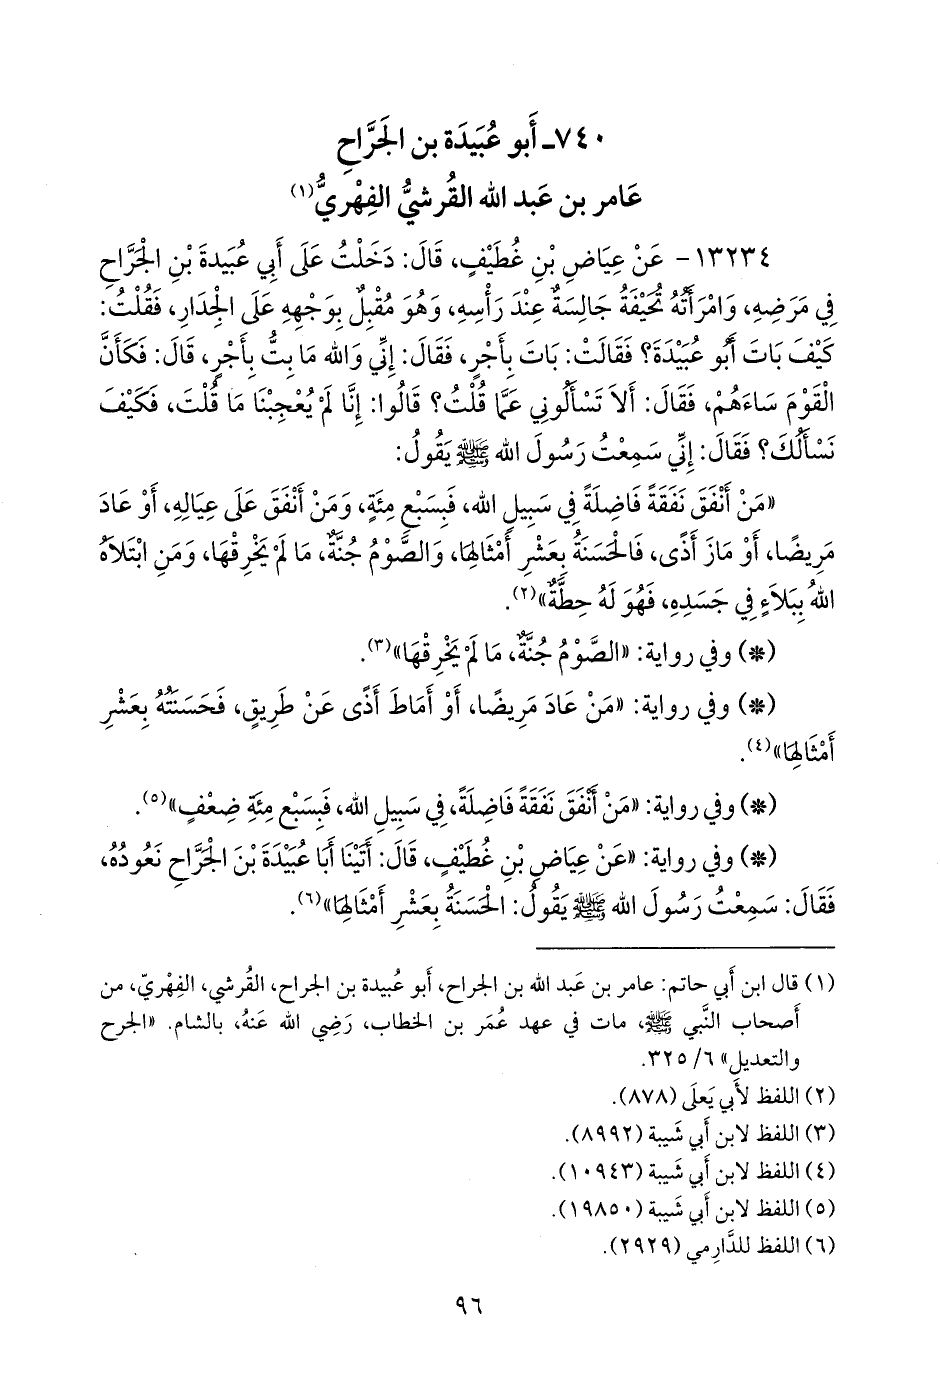 ٧٤٠ـ أَبو عُبَيدَة بن الجَرَّاحِ
عَامر بن عَبد الله القُرشيُّ الفِهْريُّ(١)
١٣٢٣٤- عَنْ عِيَاضِ بْنِ غُطَيْفٍ، قَالَ: دَخَلْتُ عَلَى أَبِي عُبَيدةَ بْنِ الْجَرَّاحِ
فِي مَرَضِهِ، وَامْرَأَتُهُ تُحَيْفَةُ جَالِسَةٌ عِنْدَ رَأْسِهِ، وَهُوَ مُقْبِلٌ بِوَجْهِهِ عَلَى الْجِدَارِ، فَقُلْتُ:
كَيْفَ بَاتَ أَبُو عُبَيْدَةَ؟ فَقَالَتْ: بَاتَ بِأَجْرٍ، فَقَالَ: إِنِّي وَالله مَا بِتُّ بِأَجْرٍ، قَالَ: فَكَأَنَّ
الْقَوْمَ سَاءَهُمْ، فَقَالَ: أَلاَ تَسْأَلُونِي عَمَّا قُلْتُ؟ قَالُوا: إِنَّا لَمْ يُعْجِبْنَا مَا قُلْتَ، فَكَيْفَ
نَسْأَلُكَ؟ فَقَالَ: إِنِّي سَمِعْتُ رَسُولَ الله ﷺ يَقُولُ:
«مَنْ أَنْفَقَ نَفَقَةً فَاضِلَةً فِي سَبِيلِ الله، فَبِسَبْعِ مِئَةٍ، وَمَنْ أَنْفَقَ عَلَى عِيَالِهِ، أَوْ عَادَ
مَرِيضًا، أَوْ مَازَ أَذًى، فَالْحَسَنَةُ بِعَشْرِ أَمْثَالِهَا، وَالصَّوْمُ جُنَّةٌ، مَا لَمْ يَخْرِقْهَا، وَمَنِ ابْتَلاَهُ
اللهُ بِبَلاَءٍ فِي جَسَدِهِ، فَهُوَ لَهُ حِطَّةٌ»(٢).
(*) وفي رواية: «الصَّوْمُ جُنَّةٌ، مَا لَمْ يَخْرِقْهَا»(٣).
(*) وفي رواية: «مَنْ عَادَ مَرِيضًا، أَوْ أَمَاطَ أَذًى عَنْ طَرِيقٍ، فَحَسَنَتُهُ بِعَشْرِ
أَمْثَالِهَا»(٤).
(*) وفي رواية: «مَنْ أَنْفَقَ نَفَقَةً فَاضِلَةً، فِي سَبِيلِ الله، فَبِسَبْعِ مِئَةِ ضِعْفٍ»(٥).
(*) وفي رواية: «عَنْ عِيَاضِ بْنِ غُطَيْفٍ، قَالَ: أَتَيْنَا أَبَا عُبَيْدَةَ بْنَ الْجَرَّاحِ نَعُودُهُ،
فَقَالَ: سَمِعْتُ رَسُولَ الله ﷺ يَقُولُ: الْحَسَنَةُ بِعَشْرِ أَمْثَالِهَا»(٦).
(١) قال ابن أَبي حاتم: عامر بن عَبد الله بن الجراح، أَبو عُبيدة بن الجراح، القُرشي، الفِهْريّ، من
أَصحاب النَّبي ﷺ، مات في عهد عُمَر بن الخطاب، رَضِي الله عَنهُ، بالشام. «الجرح
والتعديل» ٦/ ٣٢٥.
(٢) اللفظ لأَبي يَعلَى (٨٧٨).
(٣) اللفظ لابن أَبي شَيبة (٨٩٩٢).
(٤) اللفظ لابن أَبي شَيبة (١٠٩٤٣).
(٥) اللفظ لابن أَبي شَيبة (١٩٨٥٠).
(٦) اللفظ للدَّارِمي (٢٩٢٩).
٩٦